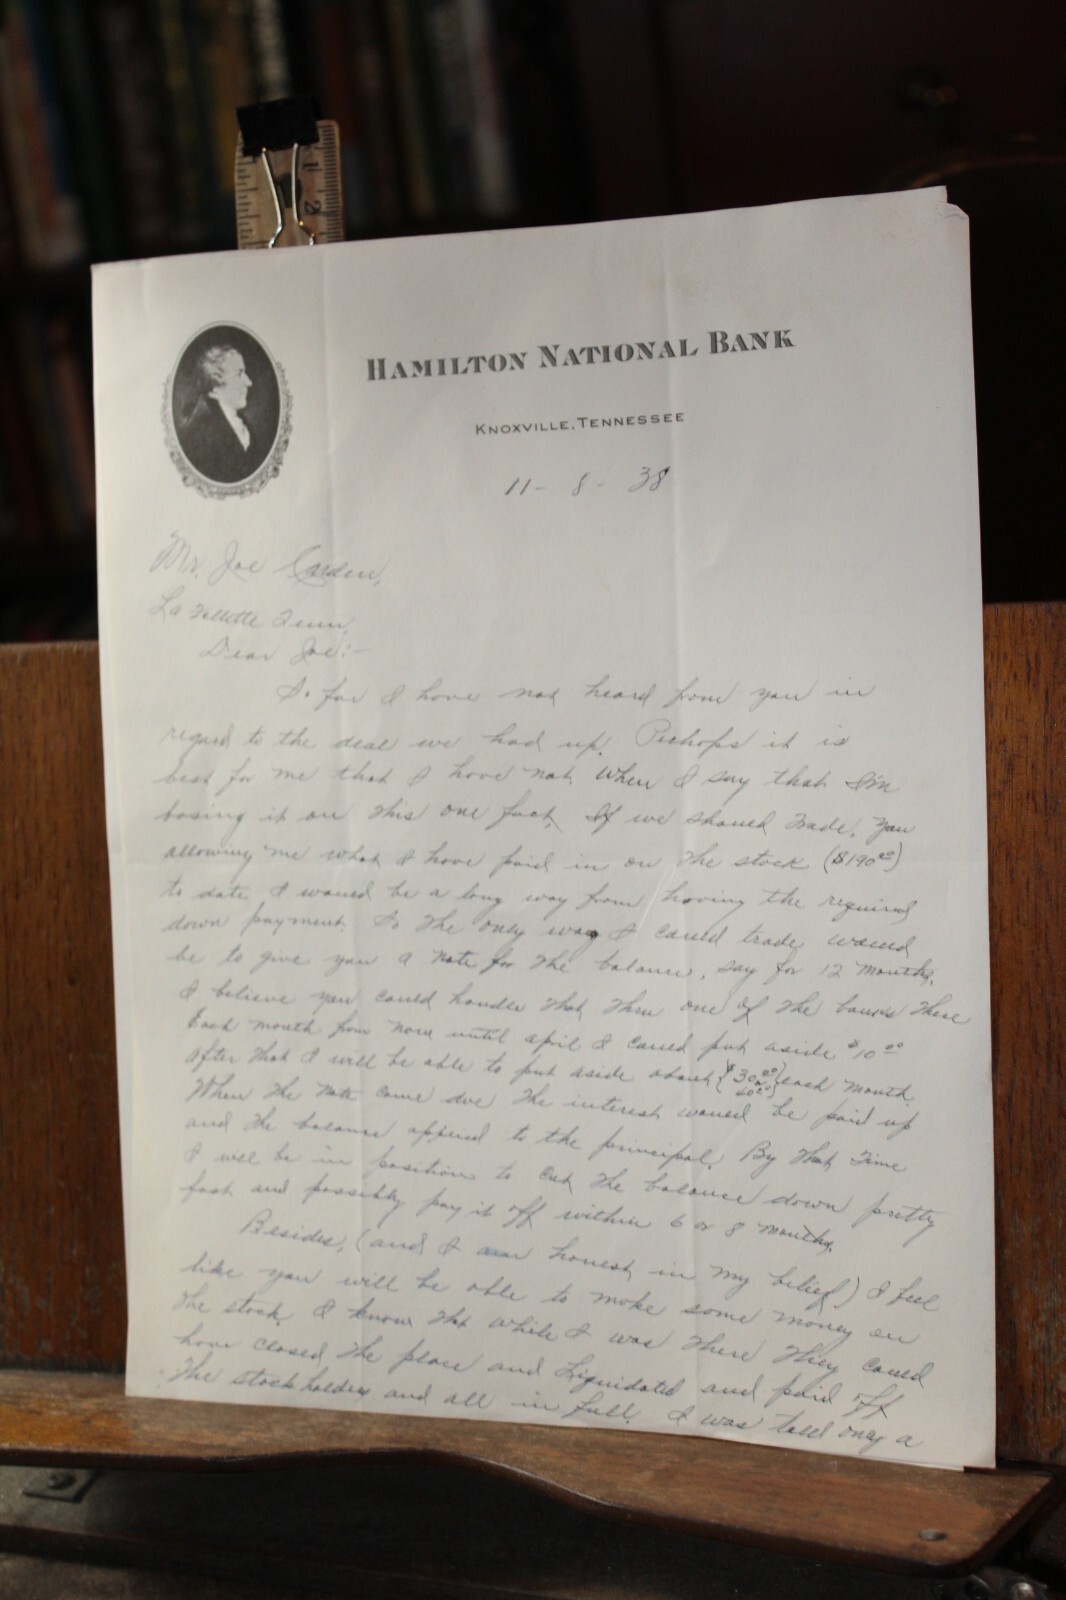 1
2
HAMILTON NATIONAL BANK
KNOXVILLE, TENNESSEE
11 - 8 - 38
Mr. Joe Carden,
La Follette Tenn.
Dear Joe:-
So far I have not heard from you in
regard to the deal we had up. Perhaps it is
best for me that I have not. When I say that I'm
basing it on this one fact. If we should trade, you
allowing me what I have paid in on the stock ($190.00)
to date I would be a long way from having the required
down payment. So the only way I could trade would
be to give you a note for the balance, say for 12 months.
I believe you could handle that thru one of the banks there
Each month from now until april I could put aside $10.00
after that I will be able to put aside about {$30.00 or 40.00} each month.
When the note came due the interest would be paid up
and the balance applied to the principal. By that time
I will be in position to cut the balance down pretty
fast and possibly pay it off within 6 or 8 months.
Besides, (and I am honest in my belief) I feel
like you will be able to make some money on
the stock. I know that while I was there they could
have closed the place and liquidated and paid off
the stockholders and all in full. I was told only a